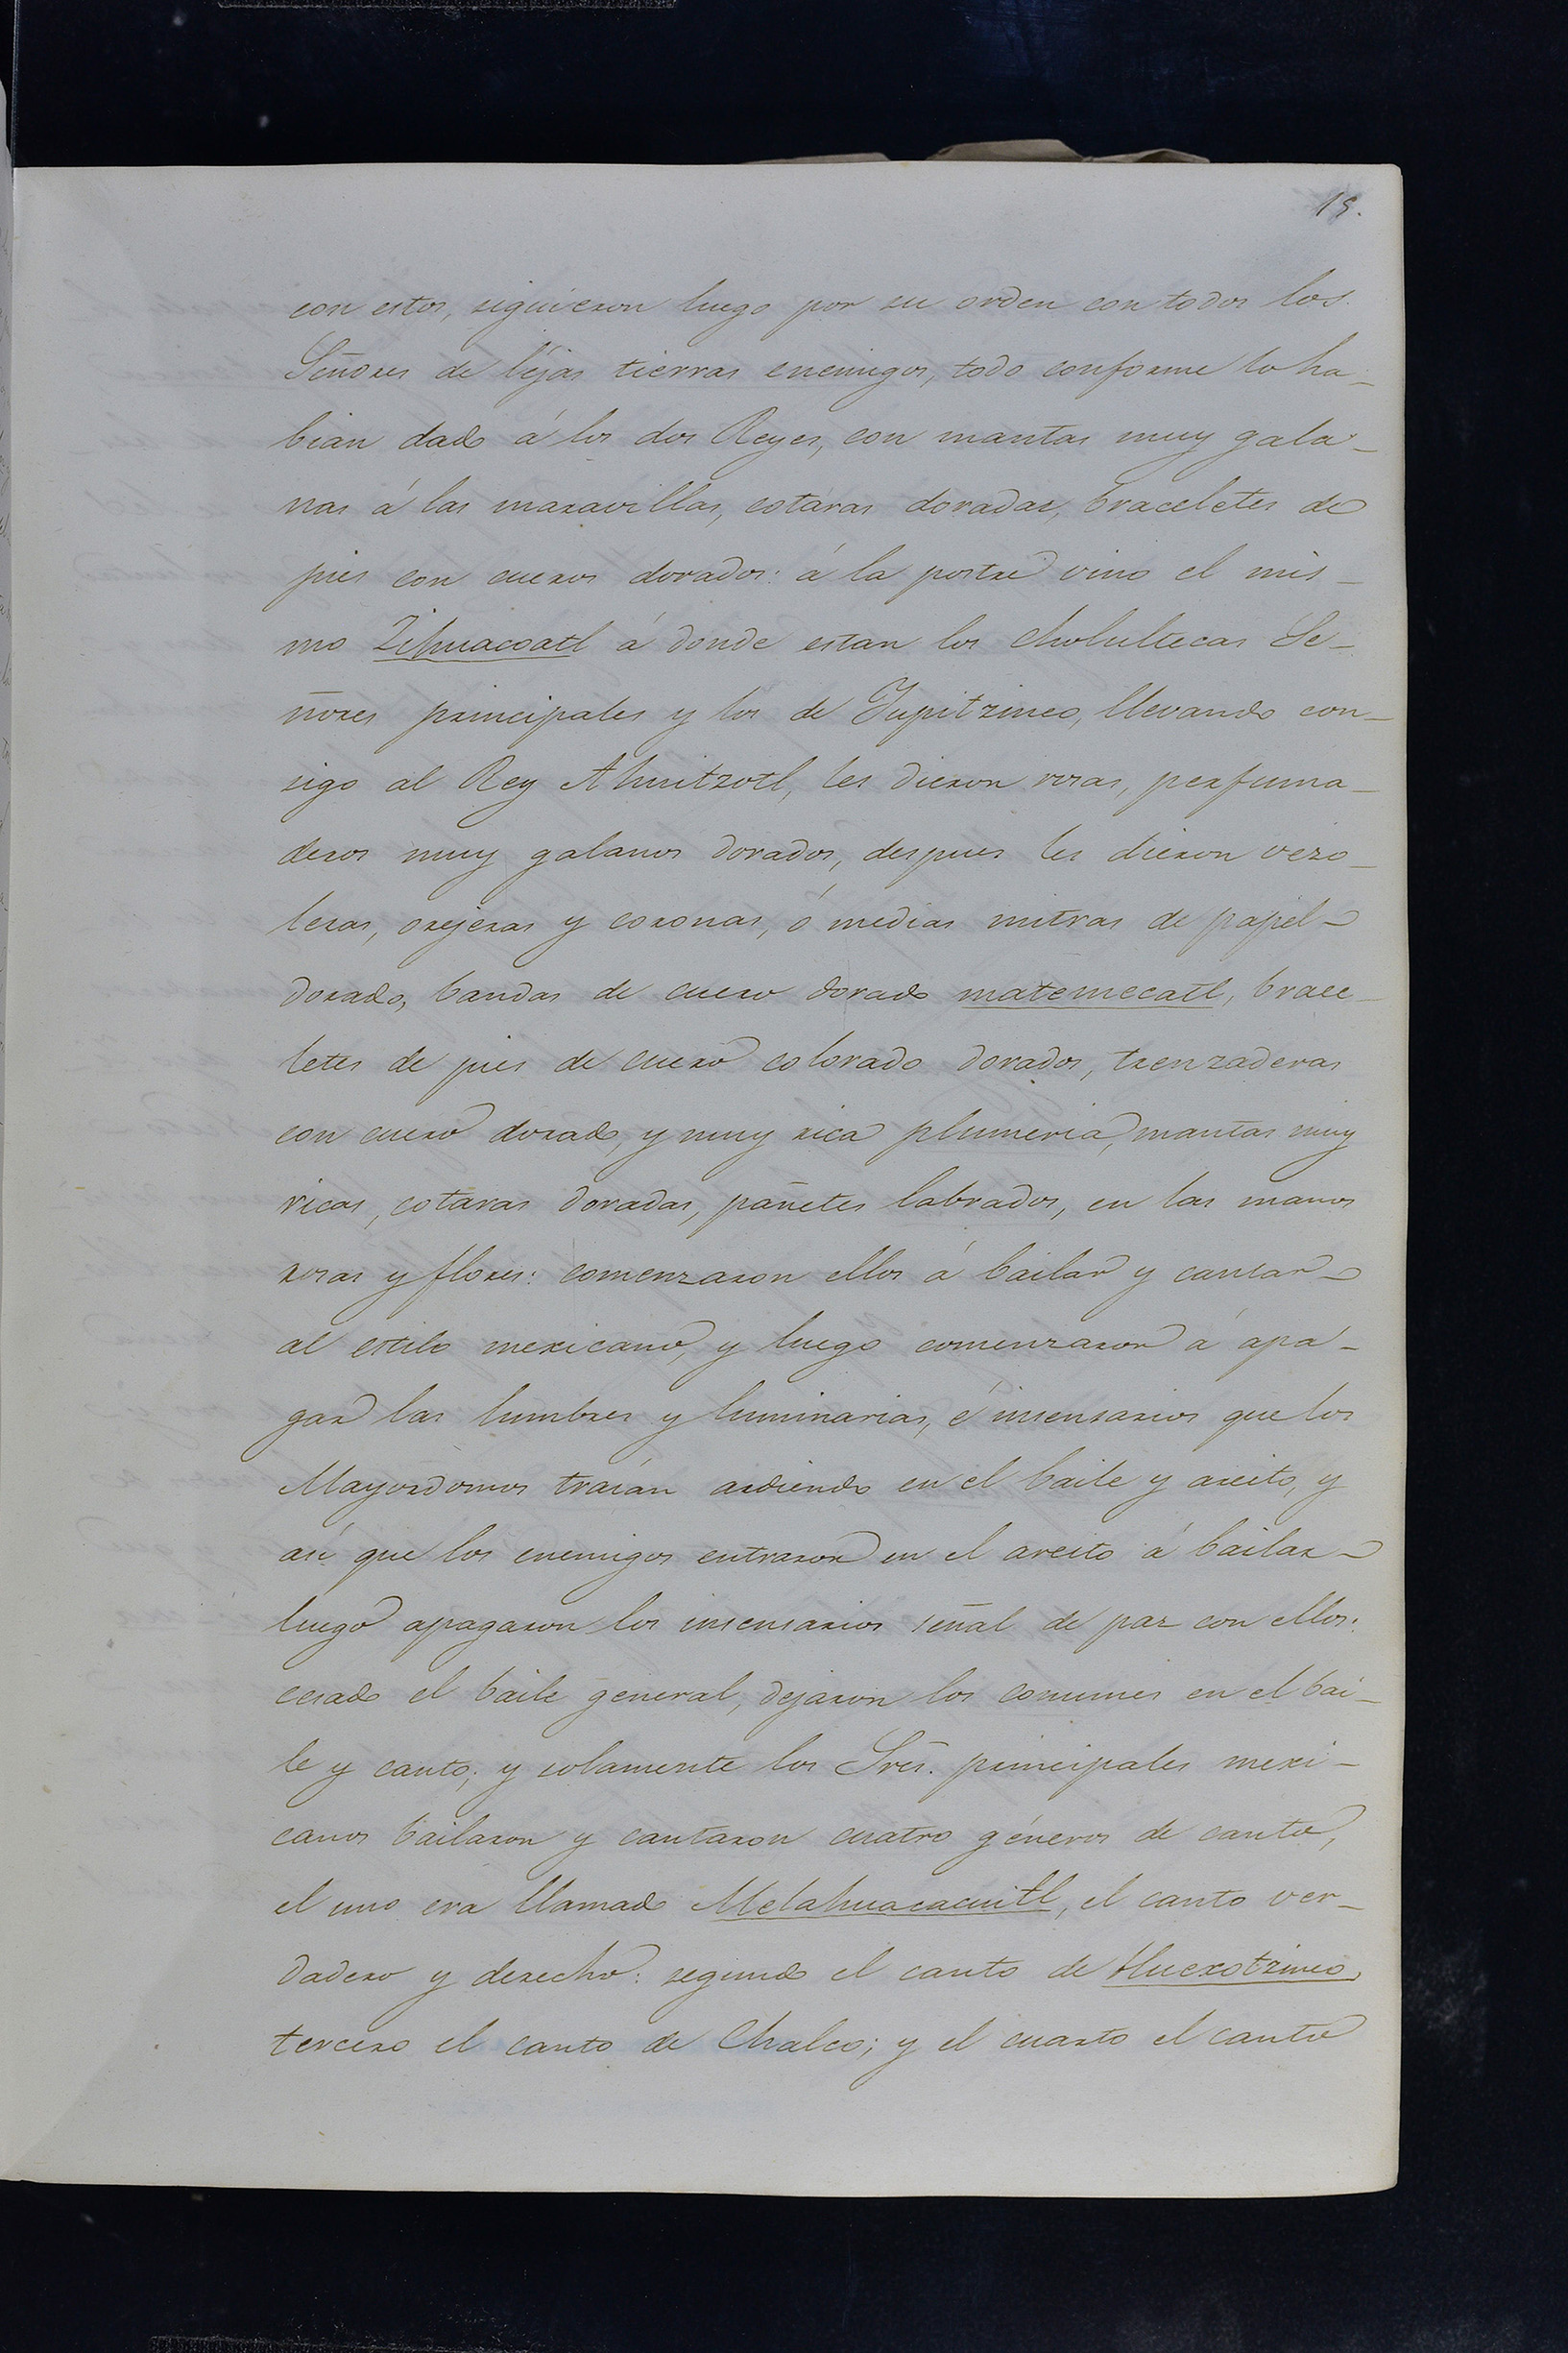 19.
con estos, siguieron luego por su orden con todos los
Señores de lejas tierras enemigos, todo conforme lo ha-
bian dado á los dos Reyes, con mantas muy gala-
nas á las maravillas, cotaras doradas, braceletes de
pies con cueros dorados: á la postre vino el mis-
mo Zihuacoatl á donde estan los Cholultecas Se-
ñores principales y los de Yupitzinco, llevando con-
sigo al Rey Ahuitzotl, les dieron rosas, perfuma-
deros muy galanos dorados, despues les dieron vezo-
leras, orejeras y coronas, ó medias mitras de papel
dorado, bandas de cuero dorado matemecatl, brace-
letes de pies de cuero colorado dorados, trenzaderas
con cuero dorado, y muy rica plumeria, mantas muy
ricas, cotaras doradas, pañetes labrados, en las manos
rosas y flores: comenzaron ellos á bailar y cantar
al estilo mexicano, y luego comenzaron á apa-
gar las lumbres y luminarias, é insensarios que los
Mayordomos traían ardiendo en el baile y areito, y
así que los enemigos entraron en el areito á bailar
luego apagaron los insensarios señal de paz con ellos:
cesado el baile general, dejaron los comunes en el bai-
le y canto; y solamente los Sres. principales mexi-
canos bailaron y cantaron cuatro géneros de canto,
el uno era llamado Melahuacacuitl, el canto ver-
dadero y derecho: segundo el canto de Huexotzinco,
tercero el canto de Chalco; y el cuarto el canto